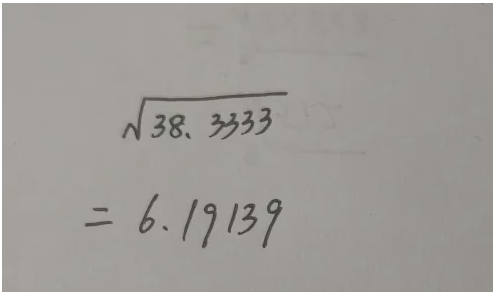 √38.3333
= 6.19139